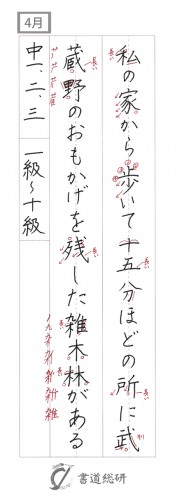 4月
私の家から歩いて十五分ほどの所に武
蔵野のおもかげを残した雑木林がある
中一、二、三　一級〜十級
書道総研